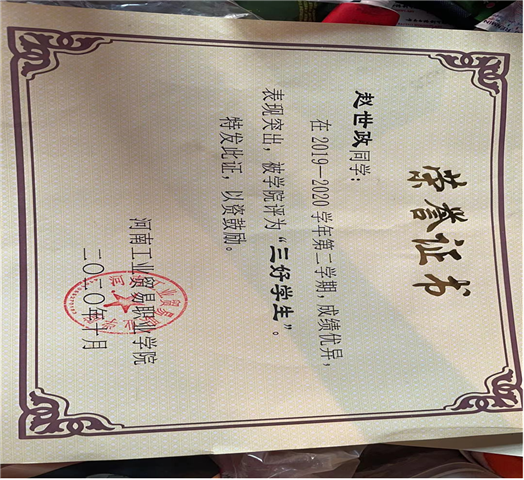 荣誉证书
赵世政同学：
在2019—2020学年第二学期，成绩优异，
表现突出，被学院评为“三好学生”。
特发此证，以资鼓励。
河南工业贸易职业学院
二〇二〇年十月